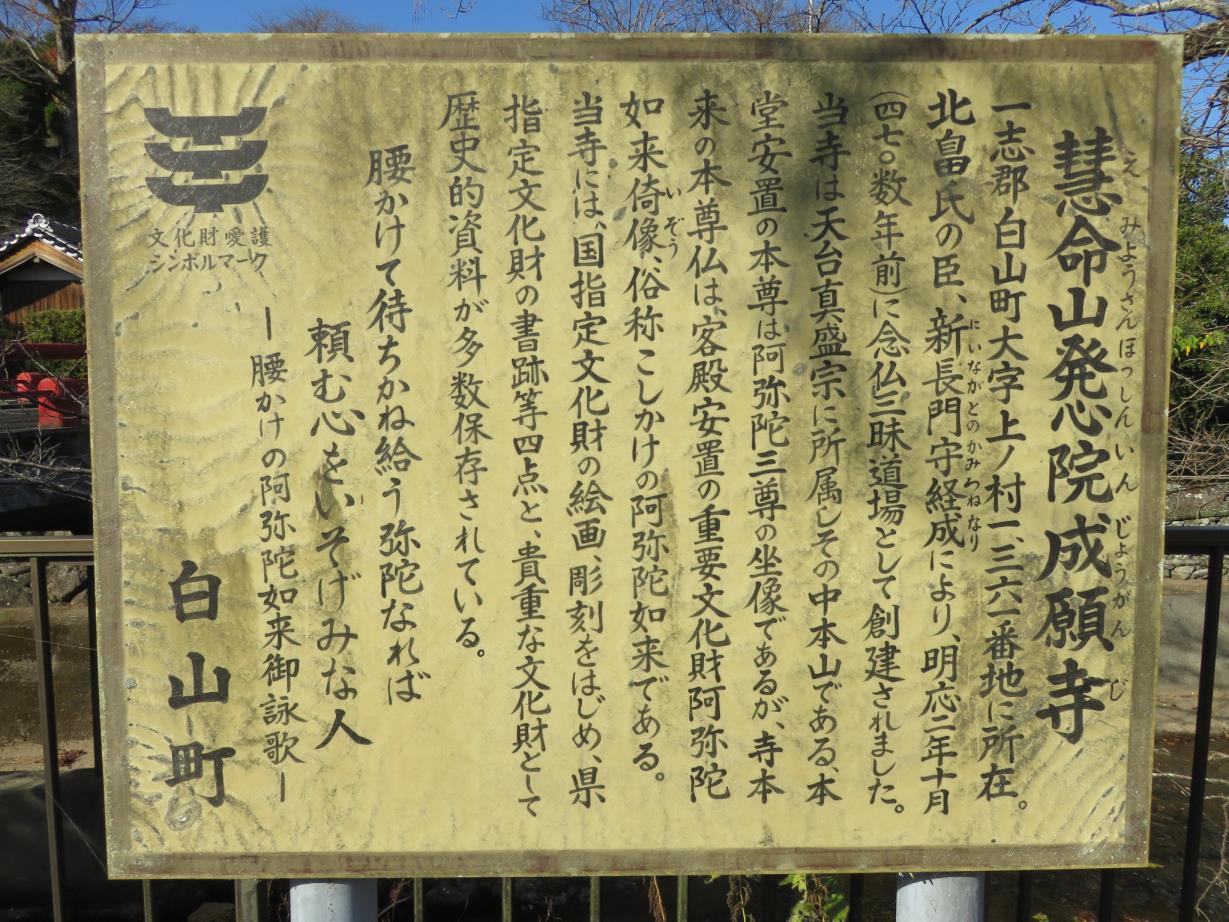 慧命山発心院成願寺
えみようさんほっしんいんじょうがんじ
一志郡白山町大字上ノ村一、三六一番地に所在。
北畠氏の臣、新長門守経成により、明応二年十月
にいながとのかみつねなり
(四七〇数年前)に念仏三昧道場として創建されました。
当寺は天台真盛宗に所属しその中本山である、本
堂安置の本尊は阿弥陀三尊の坐像であるが、寺本
来の本尊仏は、客殿安置の重要文化財阿弥陀
如来倚像、俗称こしかけの阿弥陀如来である。
いぞう
当寺には、国指定文化財の絵画、彫刻をはじめ、県
指定文化財の書跡等四点と、貴重な文化財として
歴史的資料が多数保存されている。
腰かけて待ちかね給う弥陀なれば
頼む心をいそげみな人
ー腰かけの阿弥陀如来御詠歌ー
白山町
文化財愛護
シンボルマーク